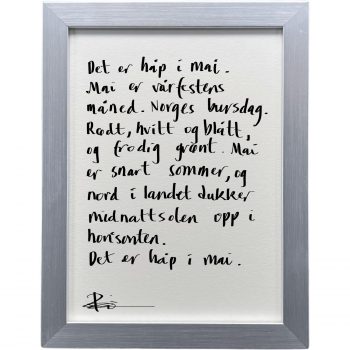 Det er håp i mai.
Mai er vårfestens
måned. Norges bursdag.
Rødt, hvitt og blått,
og frodig grønt. Mai
er snart sommer, og
nord i landet dukker
midnattsolen opp i
horisonten.
Det er håp i mai.